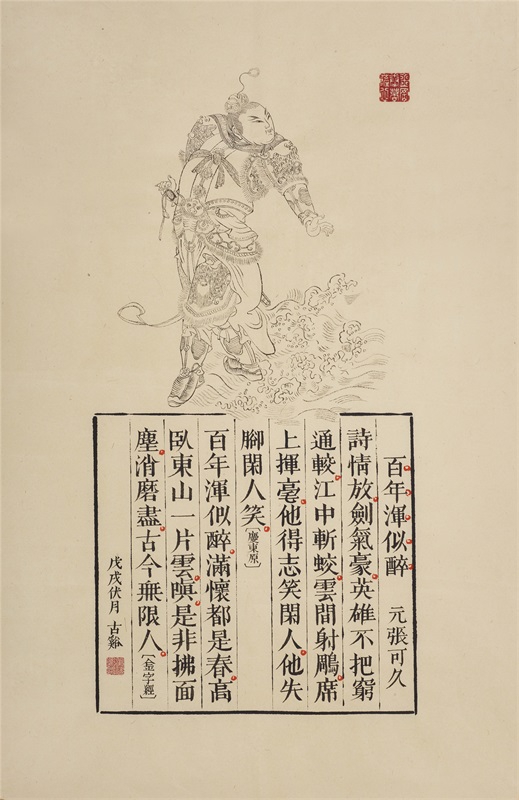 百年渾似醉 元張可久
詩情放劍氣豪英雄不把窮
通較江中斬蛟雲間射鵰席
上揮毫他得志笑閑人他失
腳閑人笑〔慶東原〕
百年渾似醉滿懷都是春高
臥東山一片雲嗔是非拂面
塵消磨盡古今無限人〔金字經〕
戊戌伏月 古谿